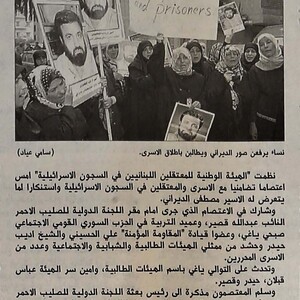 prisoners
نساء يرفعن صور الديراني ويطالبن باطلاق الاسرى.
(سامي عياد)
نظمت "الهيئة الوطنية للمعتقلين اللبنانيين في السجون الاسرائيلية" امس
اعتصاما تضامنيا مع الاسرى والمعتقلين في السجون الاسرائيلية واستنكارا لما
يتعرض له الاسير مصطفى الديراني.
وشارك في الاعتصام الذي جرى امام مقر اللجنة الدولية للصليب الاحمر
النائب عبدالله قصير، وعميد التربية في الحزب السوري القومي الاجتماعي
صبحي ياغي، وعضوا قيادة "المقاومة المؤمنة" علي الحسيني والشيخ اديب
حيدر وحشد من ممثلي الهيئات الطالبية والشبابية والاجتماعية وعدد من
الاسرى المحررين.
وتحدث على التوالي ياغي باسم الهيئات الطالبية، وامين سر الهيئة عباس
قبلان، حيدر، وقصير.
وسلم المعتصمون مذكرة الى رئيس بعثة اللجنة الدولية للصليب الاحمر